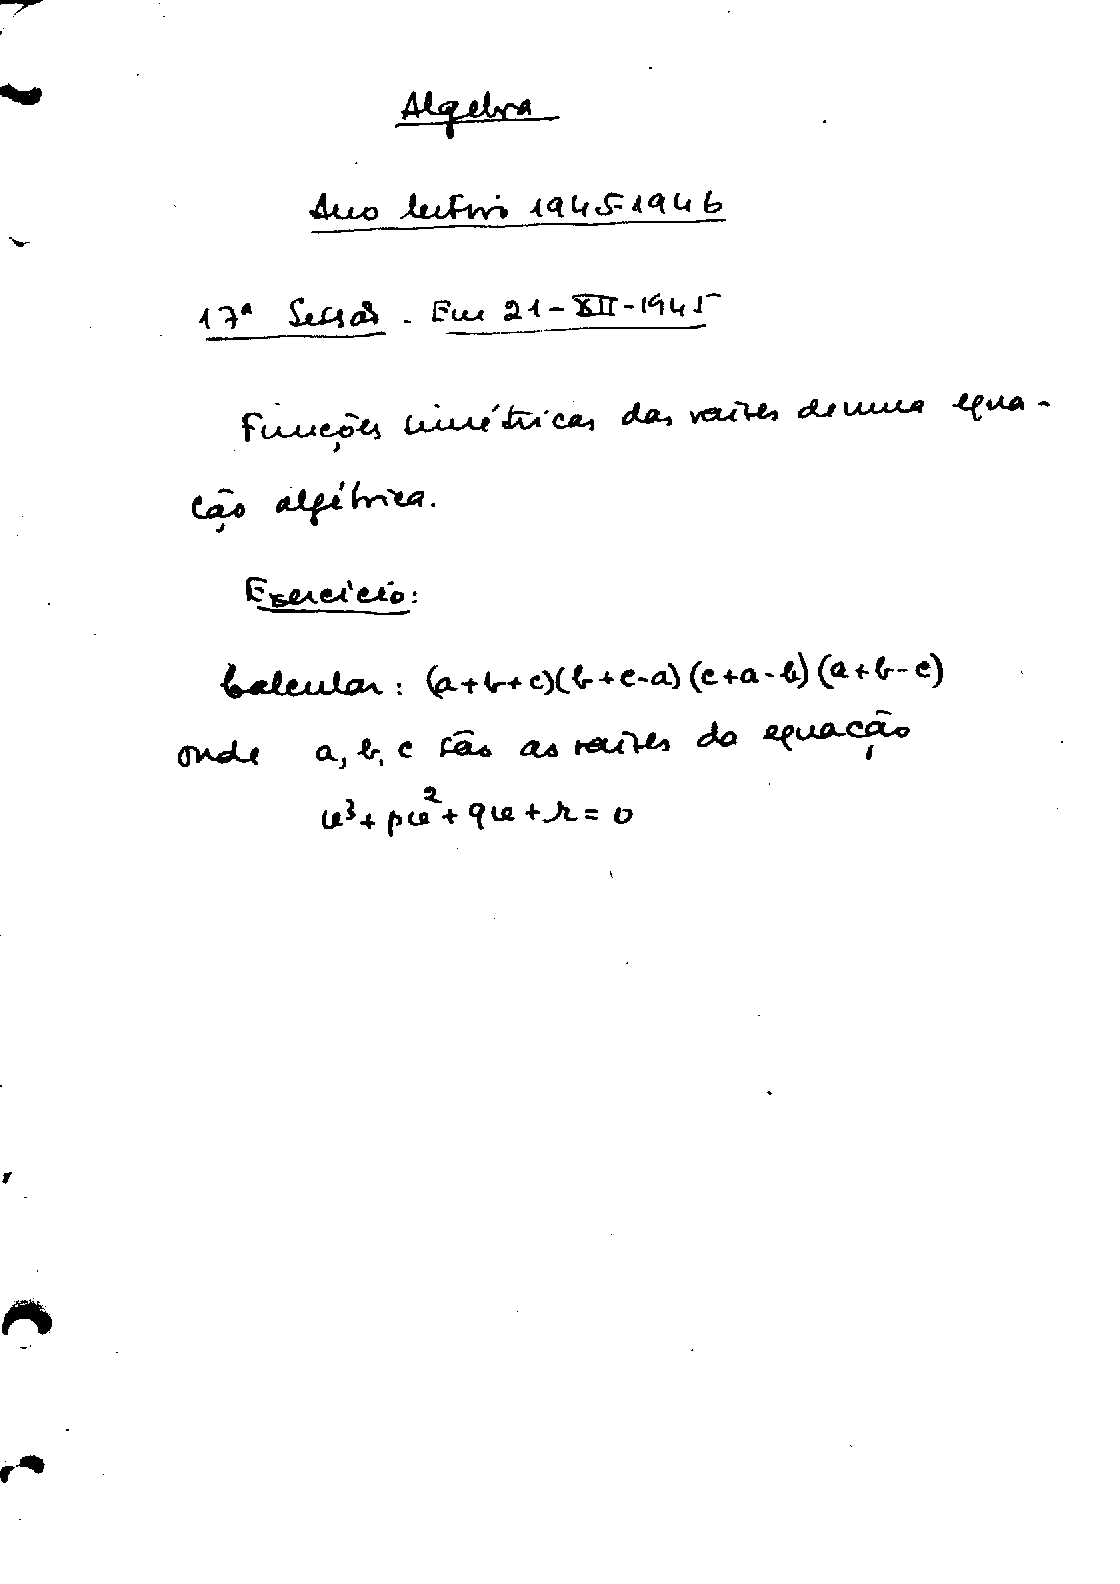 Algebra
Ano lectivo 1945-1946
17ª Sessão - Em 21-XII-1945
Funções simétricas das raízes de uma equa-
ção algébrica.
Exercício:
Calcular: (a+b+c)(b+c-a)(c+a-b)(a+b-c)
onde a, b, c são as raízes da equação
u³ + pu² + qu + r = 0